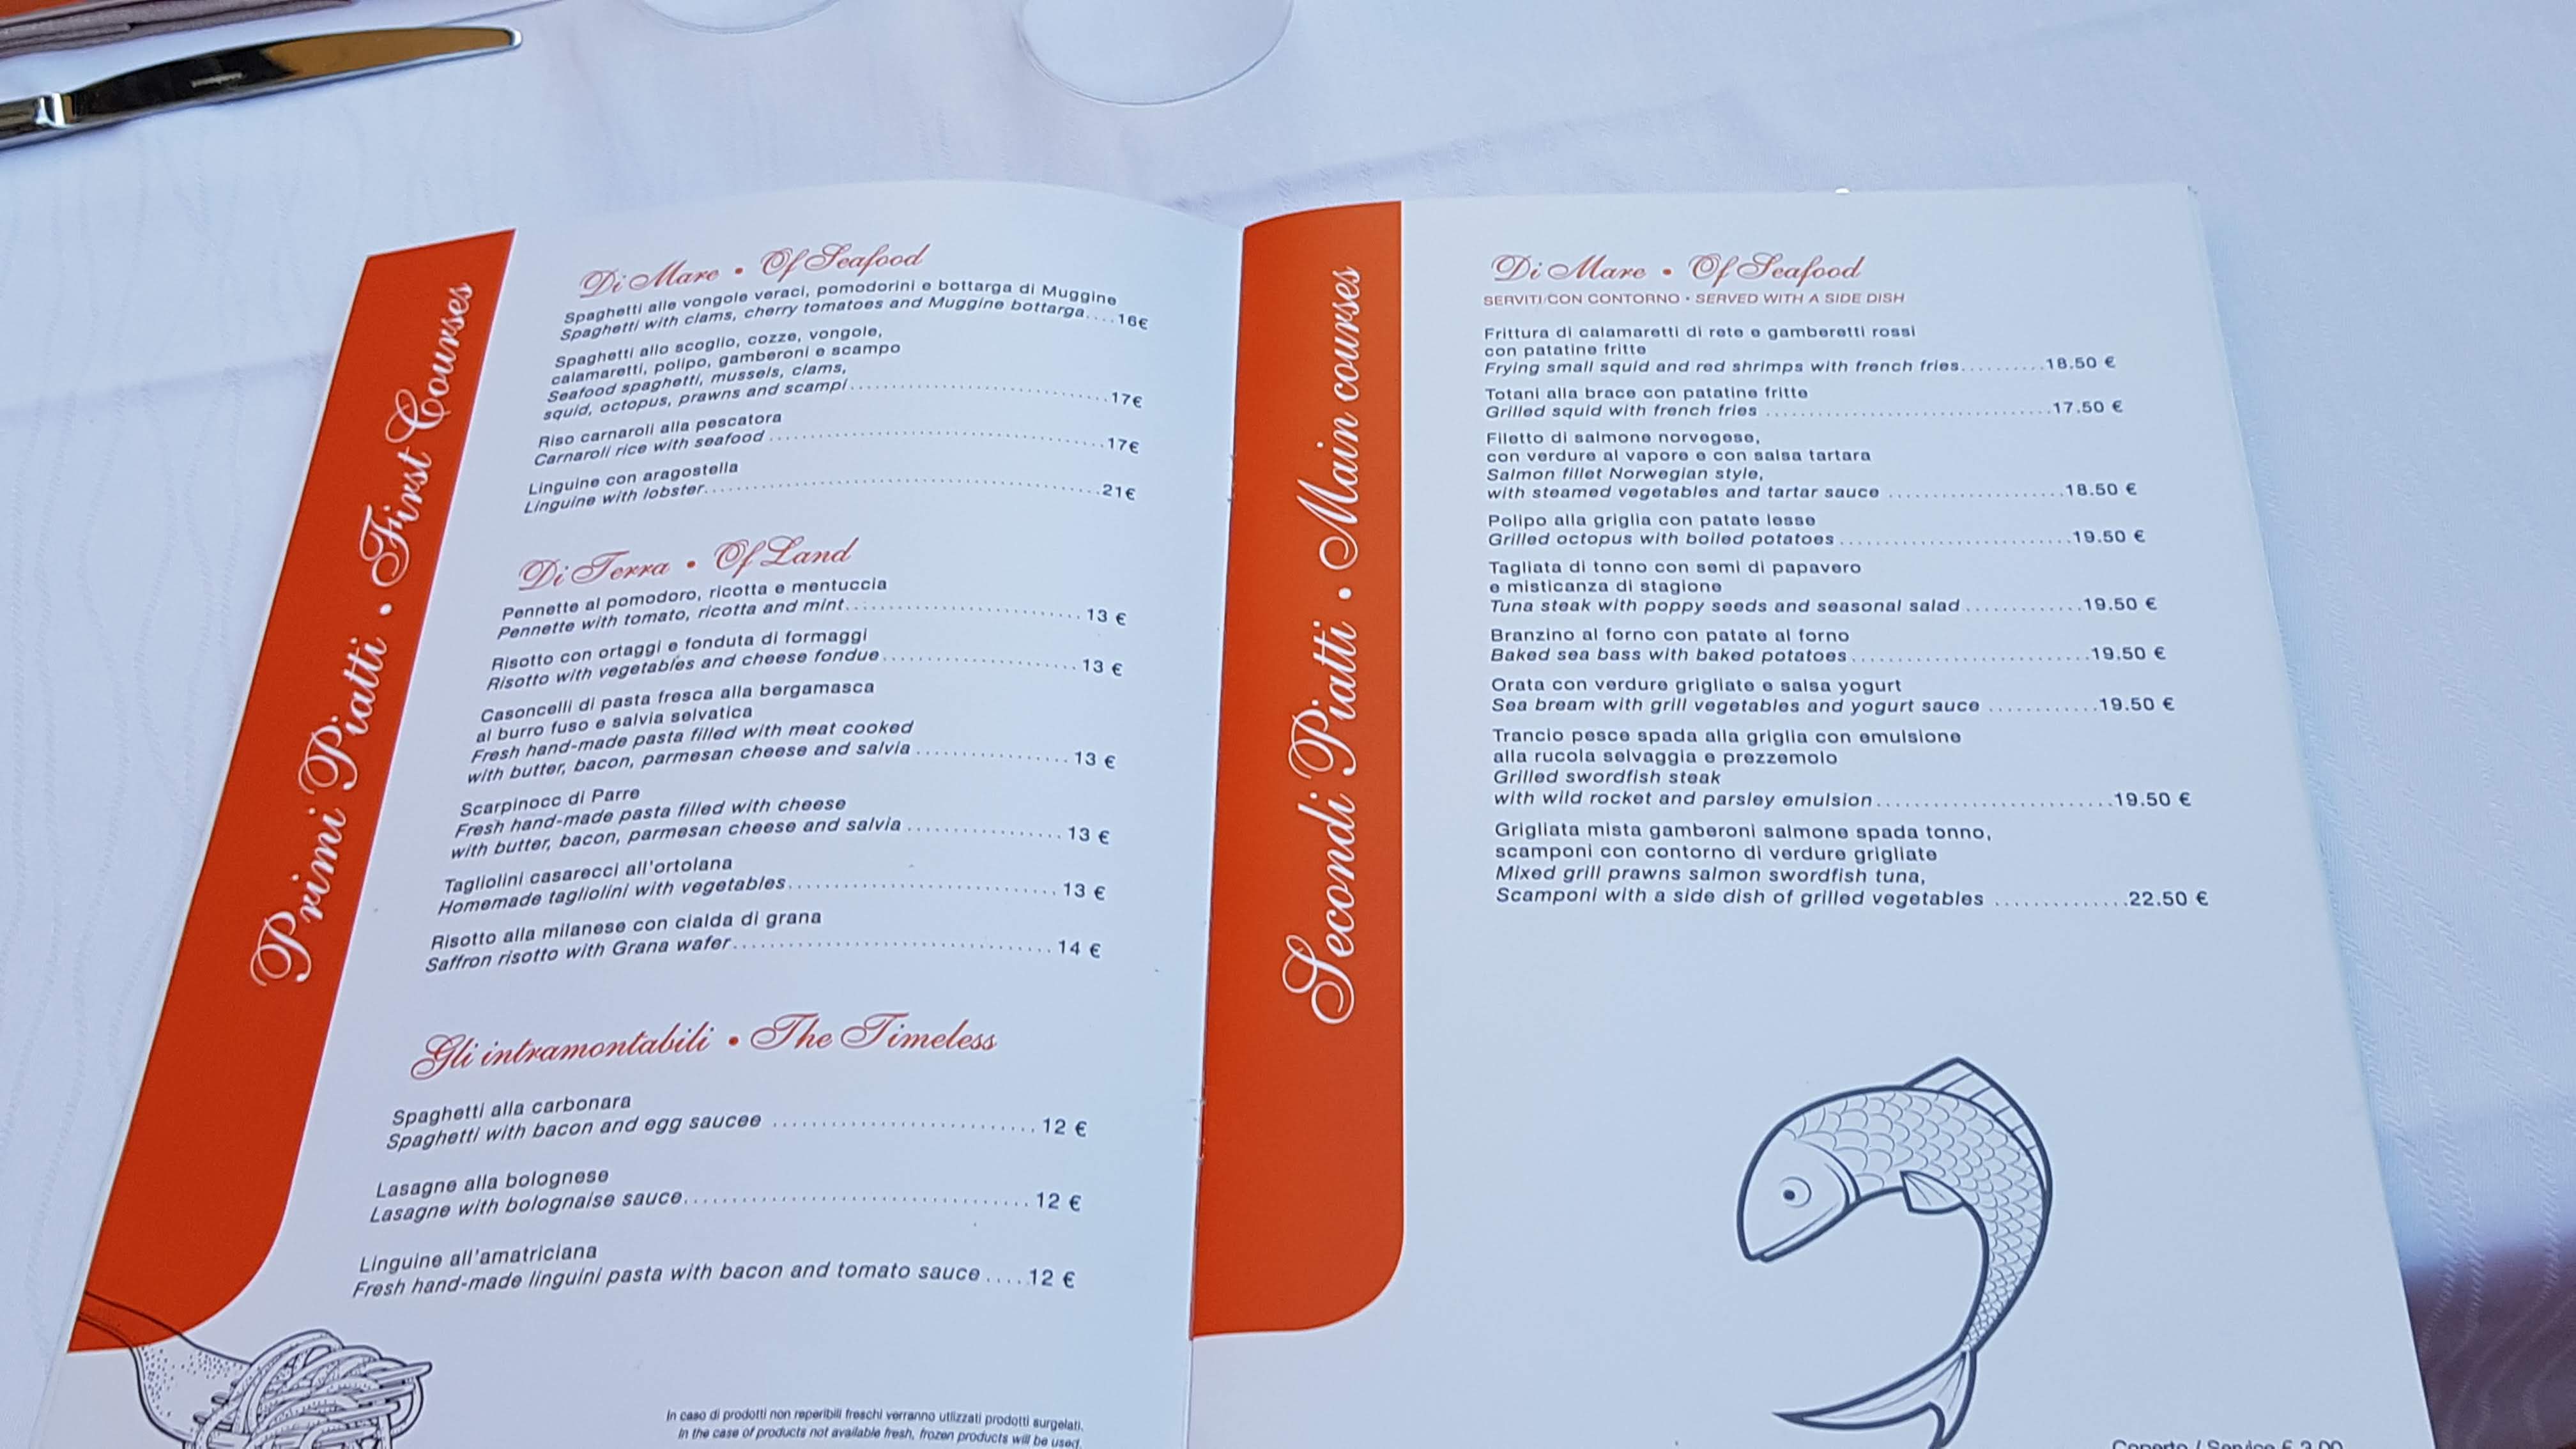 Primi Piatti • First Courses
Di Mare • Of Seafood
Spaghetti alle vongole veraci, pomodorini e bottarga di Muggine
Spaghetti with clams, cherry tomatoes and Muggine bottarga....16€
Spaghetti allo scoglio, cozze, vongole,
calamaretti, polipo, gamberoni e scampo
Seafood spaghetti, mussels, clams,
squid, octopus, prawns and scampi ........ 17€
Riso carnaroli alla pescatora
Carnaroli rice with seafood ........ 17€
Linguine con aragostella
Linguine with lobster........ 21€
Di Terra • Of Land
Pennette al pomodoro, ricotta e mentuccia
Pennette with tomato, ricotta and mint........ 13 €
Risotto con ortaggi e fonduta di formaggi
Risotto with vegetables and cheese fondue........ 13 €
Casoncelli di pasta fresca alla bergamasca
al burro fuso e salvia selvatica
Fresh hand-made pasta filled with meat cooked
with butter, bacon, parmesan cheese and salvia ........ 13 €
Scarpinocc di Parre
Fresh hand-made pasta filled with cheese
with butter, bacon, parmesan cheese and salvia ........ 13 €
Tagliolini casarecci all'ortolana
Homemade tagliolini with vegetables........ 13 €
Risotto alla milanese con cialda di grana
Saffron risotto with Grana wafer........ 14 €
Gli intramontabili • The Timeless
Spaghetti alla carbonara
Spaghetti with bacon and egg saucee ........ 12 €
Lasagne alla bolognese
Lasagne with bolognaise sauce........ 12 €
Linguine all'amatriciana
Fresh hand-made linguini pasta with bacon and tomato sauce .....12 €
In caso di prodotti non reperibili freschi verranno utilizzati prodotti surgelati.
In the case of products not available fresh, frozen products will be used.
Secondi Piatti • Main courses
Di Mare • Of Seafood
SERVITI CON CONTORNO • SERVED WITH A SIDE DISH
Frittura di calamaretti di rete e gamberetti rossi
con patatine fritte
Frying small squid and red shrimps with french fries..........18.50 €
Totani alla brace con patatine fritte
Grilled squid with french fries ........ 17.50 €
Filetto di salmone norvegese,
con verdure al vapore e con salsa tartara
Salmon fillet Norwegian style,
with steamed vegetables and tartar sauce ........ 18.50 €
Polipo alla griglia con patate lesse
Grilled octopus with boiled potatoes ........ 19.50 €
Tagliata di tonno con semi di papavero
e misticanza di stagione
Tuna steak with poppy seeds and seasonal salad ........ 19.50 €
Branzino al forno con patate al forno
Baked sea bass with baked potatoes ........ 19.50 €
Orata con verdure grigliate e salsa yogurt
Sea bream with grill vegetables and yogurt sauce ........ 19.50 €
Trancio pesce spada alla griglia con emulsione
alla rucola selvaggia e prezzemolo
Grilled swordfish steak
with wild rocket and parsley emulsion ........ 19.50 €
Grigliata mista gamberoni salmone spada tonno,
scamponi con contorno di verdure grigliate
Mixed grill prawns salmon swordfish tuna,
Scamponi with a side dish of grilled vegetables ........ 22.50 €
Coperto / Service €